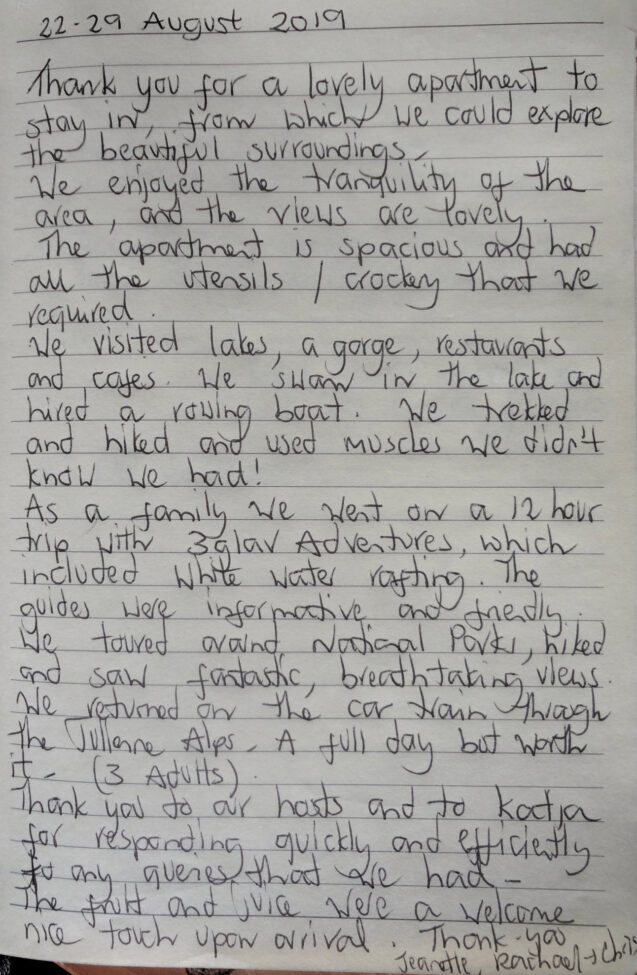 22-29 August 2019
Thank you for a lovely apartment to
stay in, from which we could explore
the beautiful surroundings.
We enjoyed the tranquility of the
area, and the views are lovely.
The apartment is spacious and had
all the utensils / crockey that we
required.
We visited lakes, a gorge, restaurants
and cafes. We swam in the lake and
hired a rowing boat. We trekked
and hiked and used muscles we didn't
know we had!
As a family we went on a 12 hour
trip with 3glav Adventures, which
included white water rafting. The
guides were informative and friendly.
We toured around National Parks, hiked
and saw fantastic, breathtaking views.
We returned on the car train through
the Julienne Alps. A full day but worth
it - (3 Adults).
Thank you to our hosts and to Katja
for responding quickly and efficiently
to any queries that we had -
The fruit and juice were a welcome
nice touch upon arrival. Thank-you
Jeanette Rachael + Chris